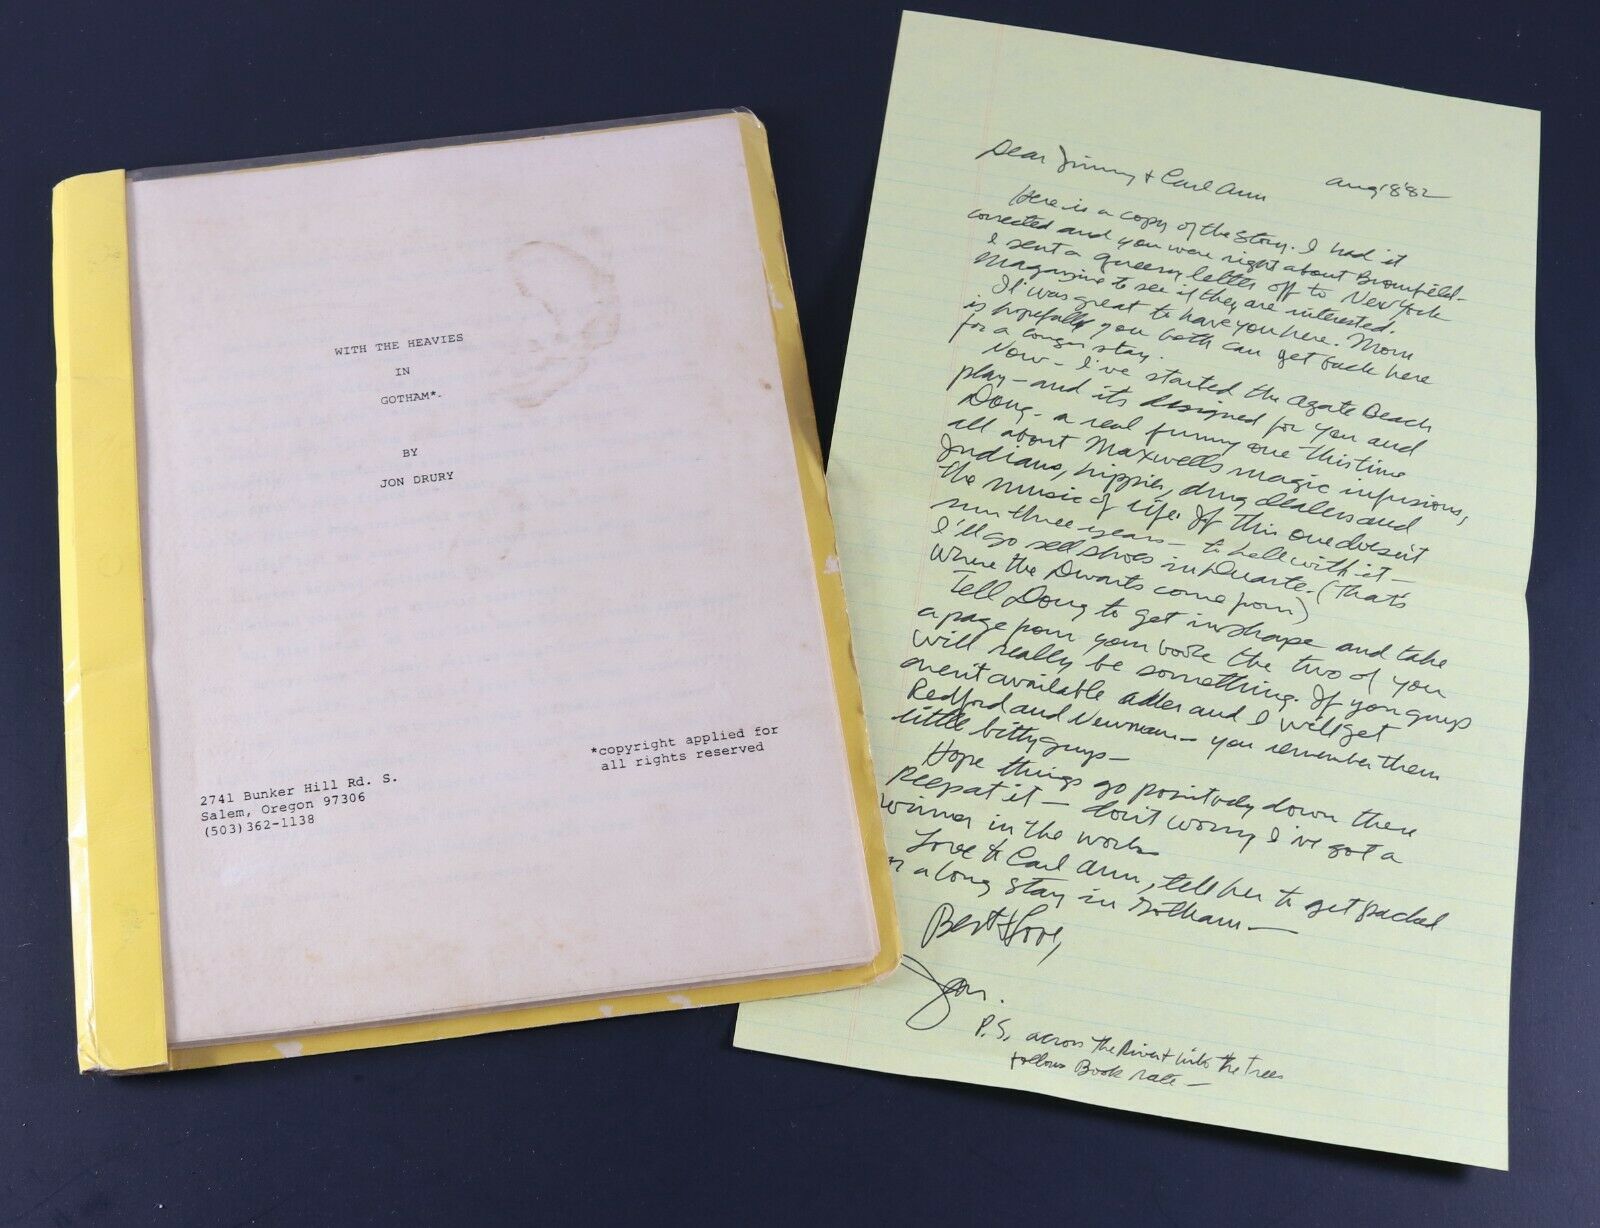 WITH THE HEAVIES
IN
GOTHAM*.
BY
JON DRURY
*copyright applied for
all rights reserved
2741 Bunker Hill Rd. S.
Salem, Oregon 97306
(503)362-1138
Dear Jimmy & Carl Ann
Aug 18'82
Here is a copy of the story. I had it
corrected and you were right about Bromfield-
I sent a queery letter off to New York
Magazine to see if they are interested.
It was great to have you here. Mom
is hopefully you both can get back here
for a longer stay.
Now - I've started the Agate Beach
play - and its designed for you and
Doug - a real funny one this time
all about Maxwells magic infusions,
Indians, hippies, drug dealers and
the music of life. If this one doesn't
run three years - to hell with it -
I'll go sell shoes in Duarte. (That's
where the Dwarts come from)
Tell Doug to get in shape and take
a page from your book the two of you
will really be something. If you guys
aren't available Adler and I will get
Redford and Newman - you remember them
little bitty guys -
Hope things go positively down there
keep at it - don't worry I've got a
winner in the works
Love to Carl Ann, tell her to get packed
for a long stay in Gotham -
Best & Love,
Jon.
P.S. across the River & into the Trees
follows Book rate -